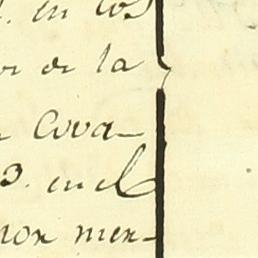 en los
de la
Cova
3. en el
nox men-